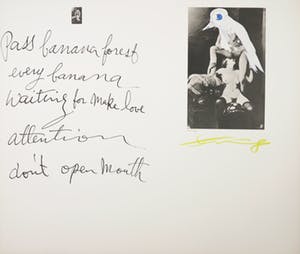 Pass banana forest
every banana
waiting for make love
attention
don't open mouth